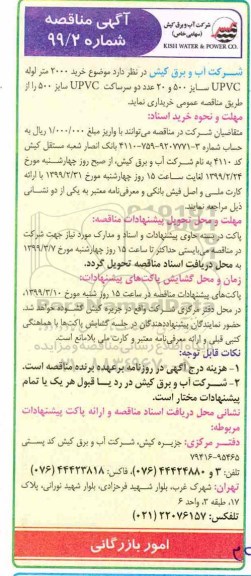 شرکت آب و برق کیش
(سهامی خاص)
KISH WATER & POWER CO.
آگهی مناقصه
شماره ۹۹/۲
شرکت آب و برق کیش در نظر دارد موضوع خرید ۲۰۰۰ متر لوله
UPVC سایز ۵۰۰ و ۲۰ عدد دو سرساکت UPVC سایز ۵۰۰ را از
طریق مناقصه عمومی خریداری نماید.
مهلت و نحوه خرید اسناد:
متقاضیان شرکت در مناقصه می‌توانند با واریز مبلغ ۱/۰۰۰/۰۰۰ ریال به
حساب شماره ۳-۹۲۰۷۷۷۱-۷۵۹-۴۱۱۰ بانک انصار شعبه مستقل کیش
کد ۴۱۱۰ به نام شرکت آب و برق کیش، از صبح روز چهارشنبه مورخ
۱۳۹۹/۲/۲۴ لغایت ساعت ۱۵ روز چهارشنبه مورخ ۱۳۹۹/۲/۳۱ با ارائه
کارت ملی و اصل فیش بانکی و معرفی‌نامه معتبر به یکی از دو نشانی
ذیل مراجعه نمایند.
مهلت و محل تحویل پیشنهادات مناقصه:
پاکت در بسته حاوی پیشنهادات و اسناد و مدارک مورد نیاز جهت شرکت
در مناقصه می‌بایستی حداکثر تا ساعت ۱۵ روز چهارشنبه مورخ ۱۳۹۹/۳/۷
به محل دریافت اسناد مناقصه تحویل گردد.
زمان و محل گشایش پاکت‌های پیشنهادات:
پاکت‌های پیشنهادات مناقصه در ساعت ۱۵ روز شنبه مورخ ۱۳۹۹/۳/۱۰،
در محل دفتر مرکزی شرکت واقع در جزیره کیش گشوده خواهد شد.
حضور نمایندگان پیشنهاددهندگان در جلسه گشایش پاکت‌ها با هماهنگی
کتبی قبلی و ارائه معرفی‌نامه معتبر و کارت ملی بلامانع است.
نکات قابل توجه:
۱- هزینه درج آگهی در روزنامه برعهده برنده مناقصه است.
۲- شرکت آب و برق کیش در رد یا قبول هر یک یا تمام
پیشنهادات مختار است.
نشانی محل دریافت اسناد مناقصه و ارائه پاکت پیشنهادات
مربوطه:
دفتر مرکزی: جزیره کیش، شرکت آب و برق کیش کد پستی
۷۹۴۱۶-۹۵۴۶۵
تلفن: ۳ و ۴۴۴۲۴۸۸۰ (۰۷۶)، فاکس: ۴۴۴۲۳۸۱۸ (۰۷۶)
تهران: شهرک غرب، بلوار شهید فرحزادی، بلوار شهید نورانی، پلاک
۱۷، طبقه ۳، واحد ۶.
تلفکس: ۲۲۰۷۶۱۵۷ (۰۲۱)
امور بازرگانی